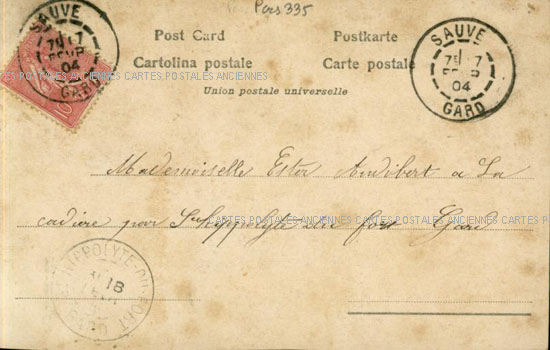 Pers 335
Post Card Postkarte
Cartolina postale Carte postale
Union postale universelle
SAUVE
7 FEVR
04
GARD
SAUVE
04
GARD
CARTES POSTALES ANCIENNES CARTES POSTALES ANCIENNES
Mademoiselle Ester Audibert a La
cadière par St hippolyte du fort Gard
CARTES POSTALES ANCIENNES CARTES POSTALES ANCIENNES CARTES POSTALES
HIPPOLYTE-DU-FORT
18
GARD